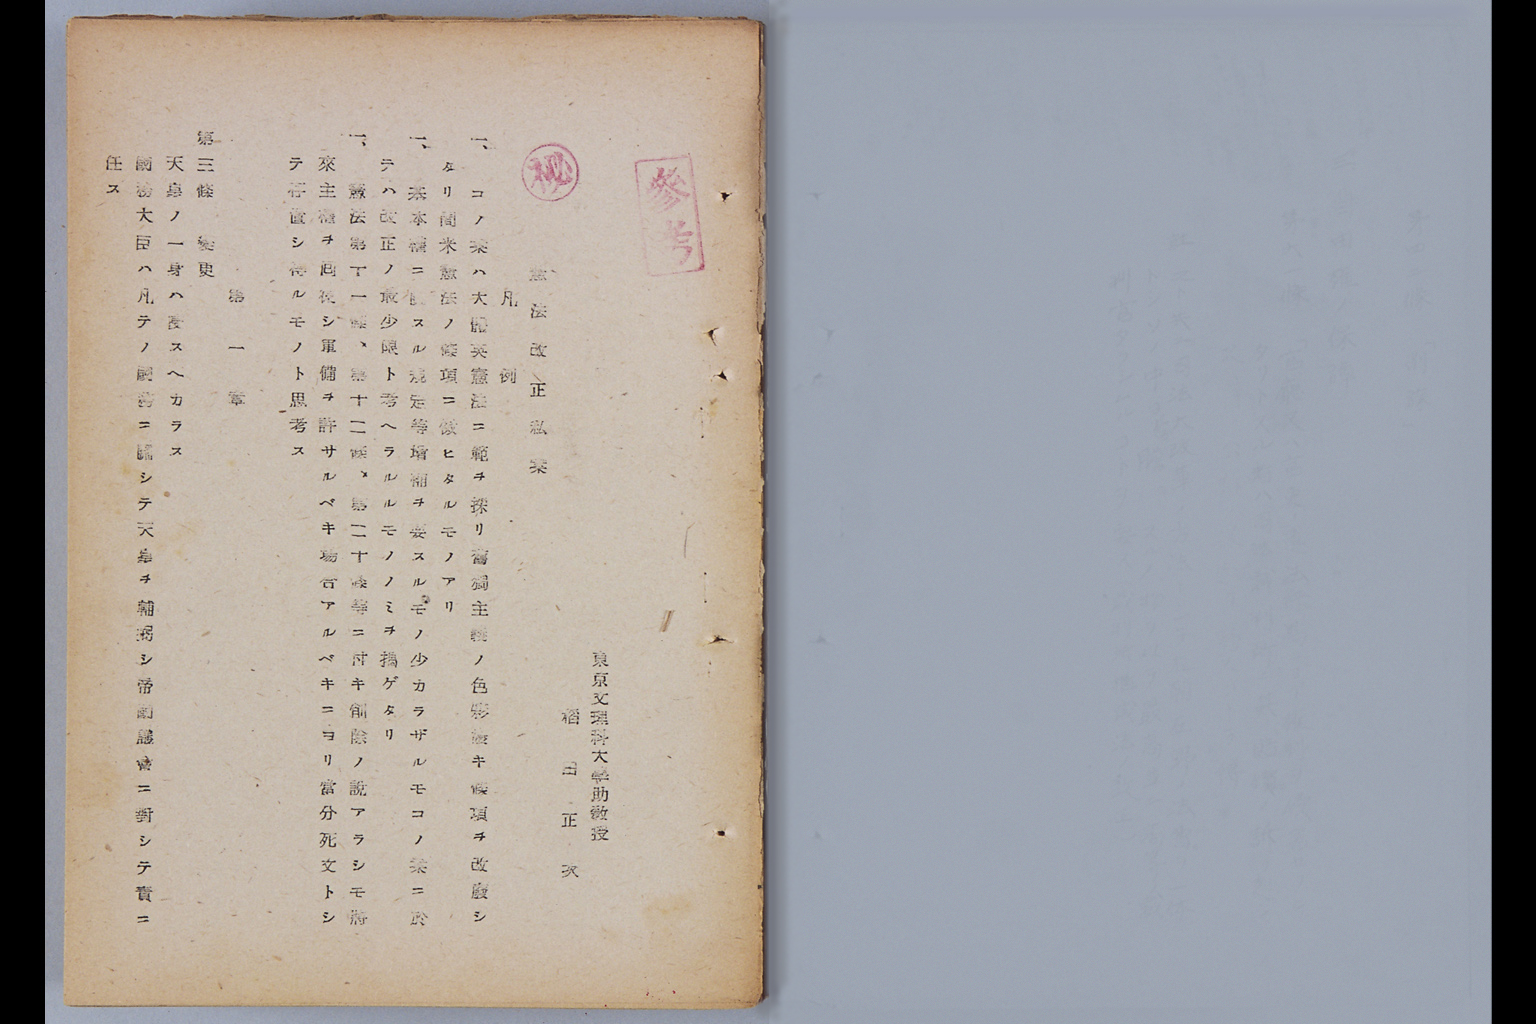 參考
秘
東京文理科大學助敎授
稻田正次
憲法改正私案
凡例
一、コノ案ハ大體英憲法ニ範ヲ採リ舊獨主義ノ色彩濃キ條項ヲ改廢シ
タリ間米憲法ノ條項ニ倣ヒタルモノアリ
一、基本權ニ關スル規定等增補ヲ要スルモノ少カラザルモコノ案ニ於
テハ改正ノ最少限ト考ヘラルルモノノミヲ揭ゲタリ
一、憲法第十一條、第十二條、第二十條等ニ付キ削除ノ說アラシモ將
來主權ヲ囘復シ軍備ヲ許サルベキ場合アルベキニヨリ當分死文トシ
テ存置シ得ルモノト思考ス
第一章
第三條 變更
天皇ノ一身ハ侵スヘカラス
國務大臣ハ凡テノ國務ニ關シテ天皇ヲ輔弼シ帝國議會ニ對シテ責ニ
任ス